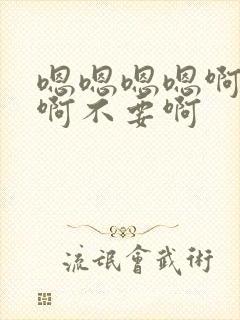 嗯嗯嗯嗯啊
啊不要啊
流氓會武術